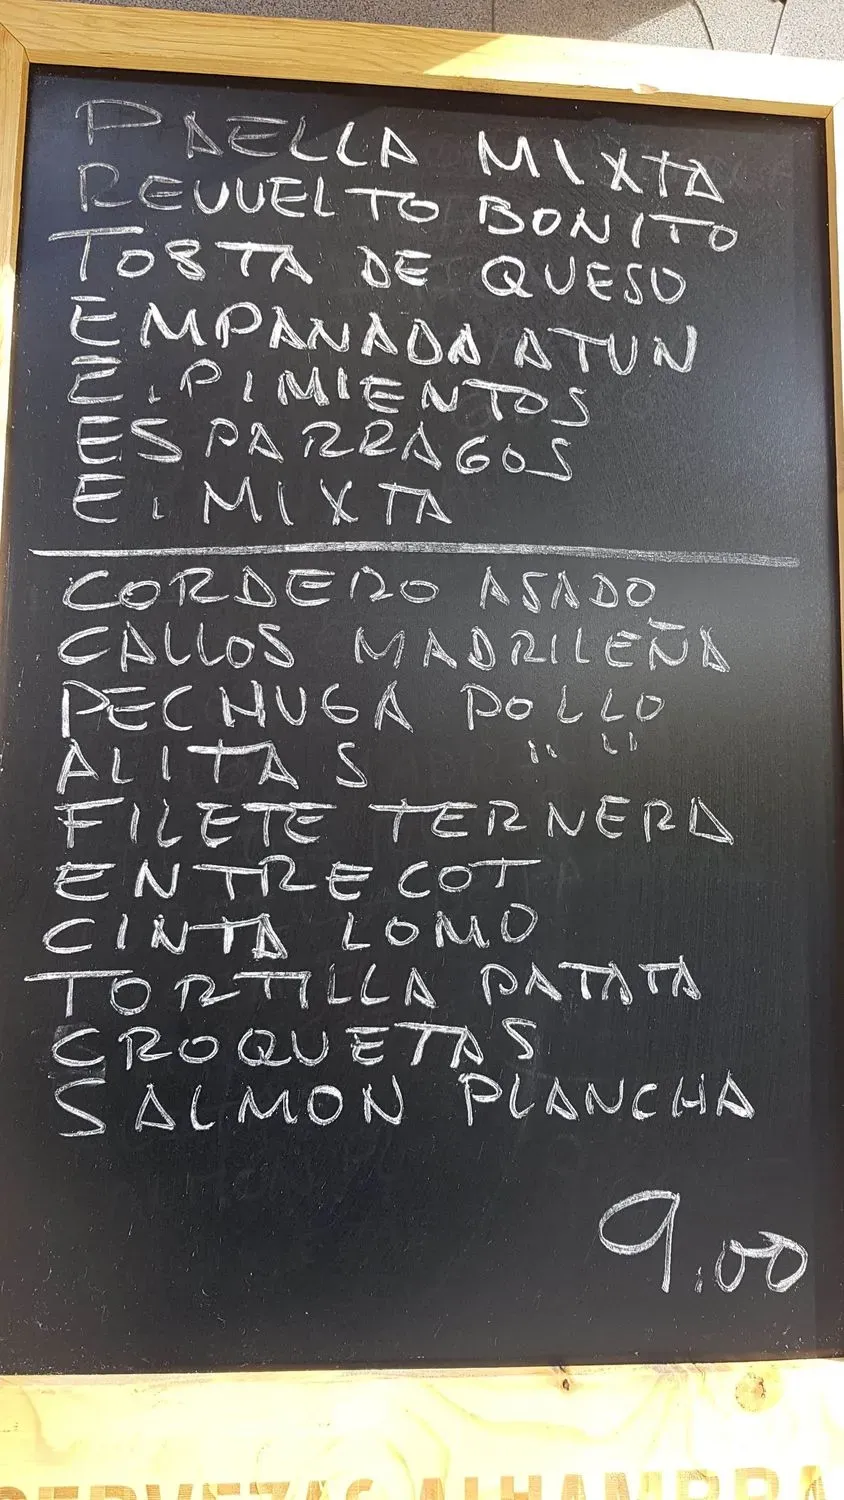 PAELLA MIXTA
REVUELTO BONITO
TOSTA DE QUESO
EMPANADA ATUN
E. PIMIENTOS
ESPARRAGOS
E. MIXTA
CORDERO ASADO
CALLOS MADRILEÑA
PECHUGA POLLO
ALITAS " "
FILETE TERNERA
ENTRECOT
CINTA LOMO
TORTILLA PATATA
CROQUETAS
SALMON PLANCHA
9.00
CERVEZAS ALHAMBRA